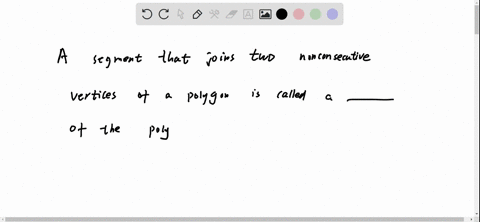 A segment that joins two nonconsecutive
vertices of a polygon is called a ____
of the poly